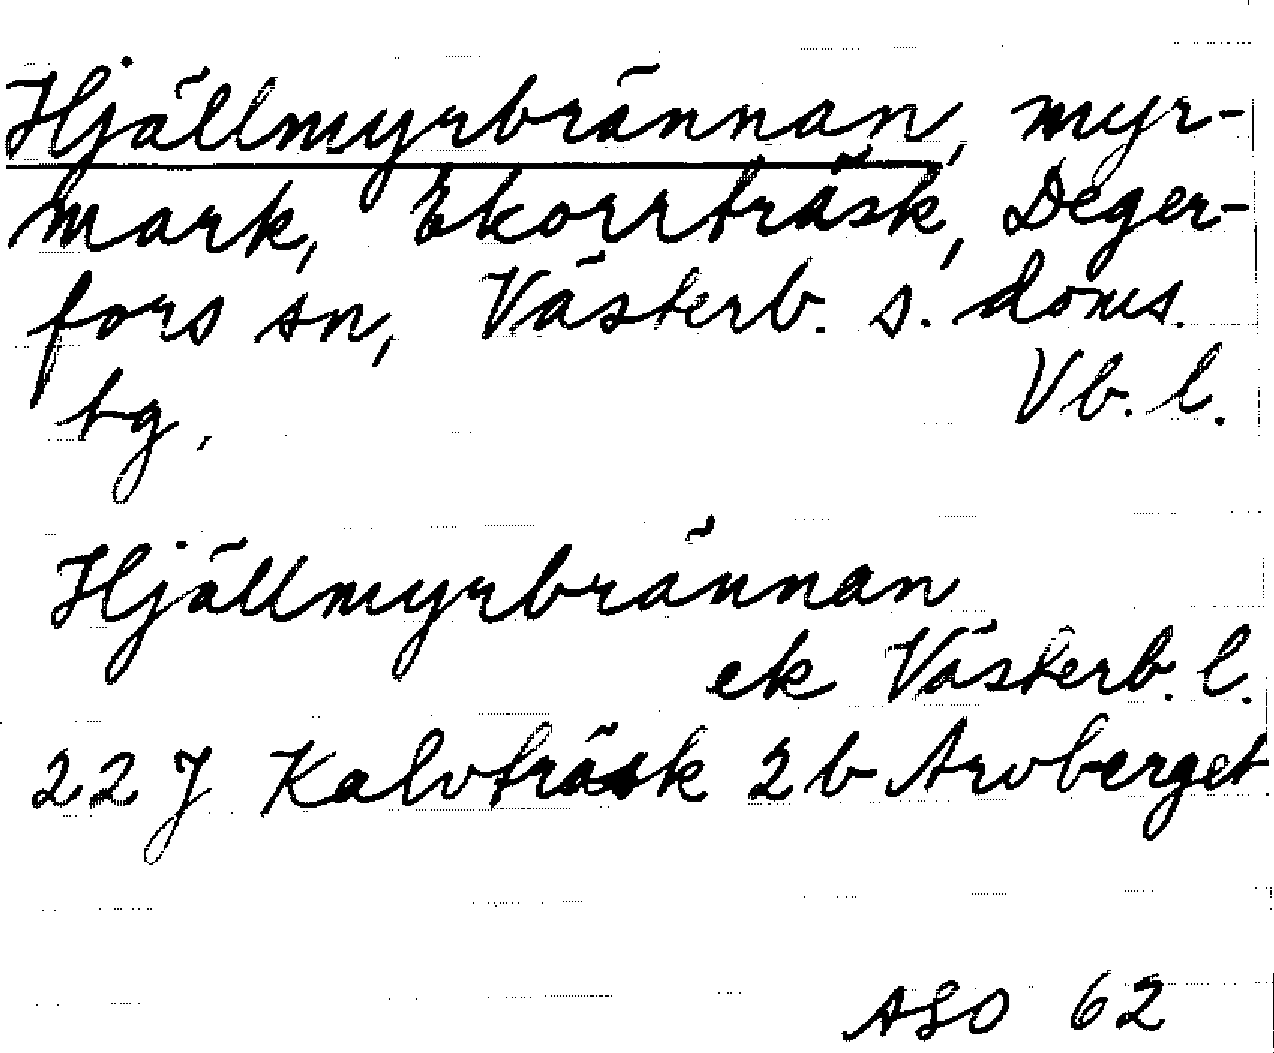 Hjällmyrbrännan, myr-
mark, Ekorrträsk, Deger-
fors sn, Västerb. s. doms.
tg. Vb. l.
Hjällmyrbrännan
ek Västerb. l.
22 J Kalvträsk 2 b Arvberget
ASO 62